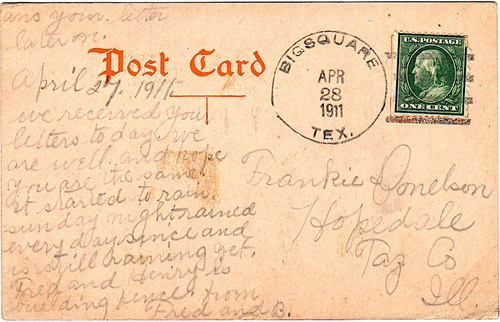 ans your letter
later on.
Post Card
April 27, 1911.
we received your
letters to day. we
are well and hope
you are the same.
it started to rain
sunday night rained
every day since and
is still raining yet.
Fred and Henry is
building fence. from
Fred and B.
BIGSQUARE
APR
28
1911
TEX.
U.S. POSTAGE
ONE CENT
Frankie Donelson
Hopedale
Taz Co
Ill.